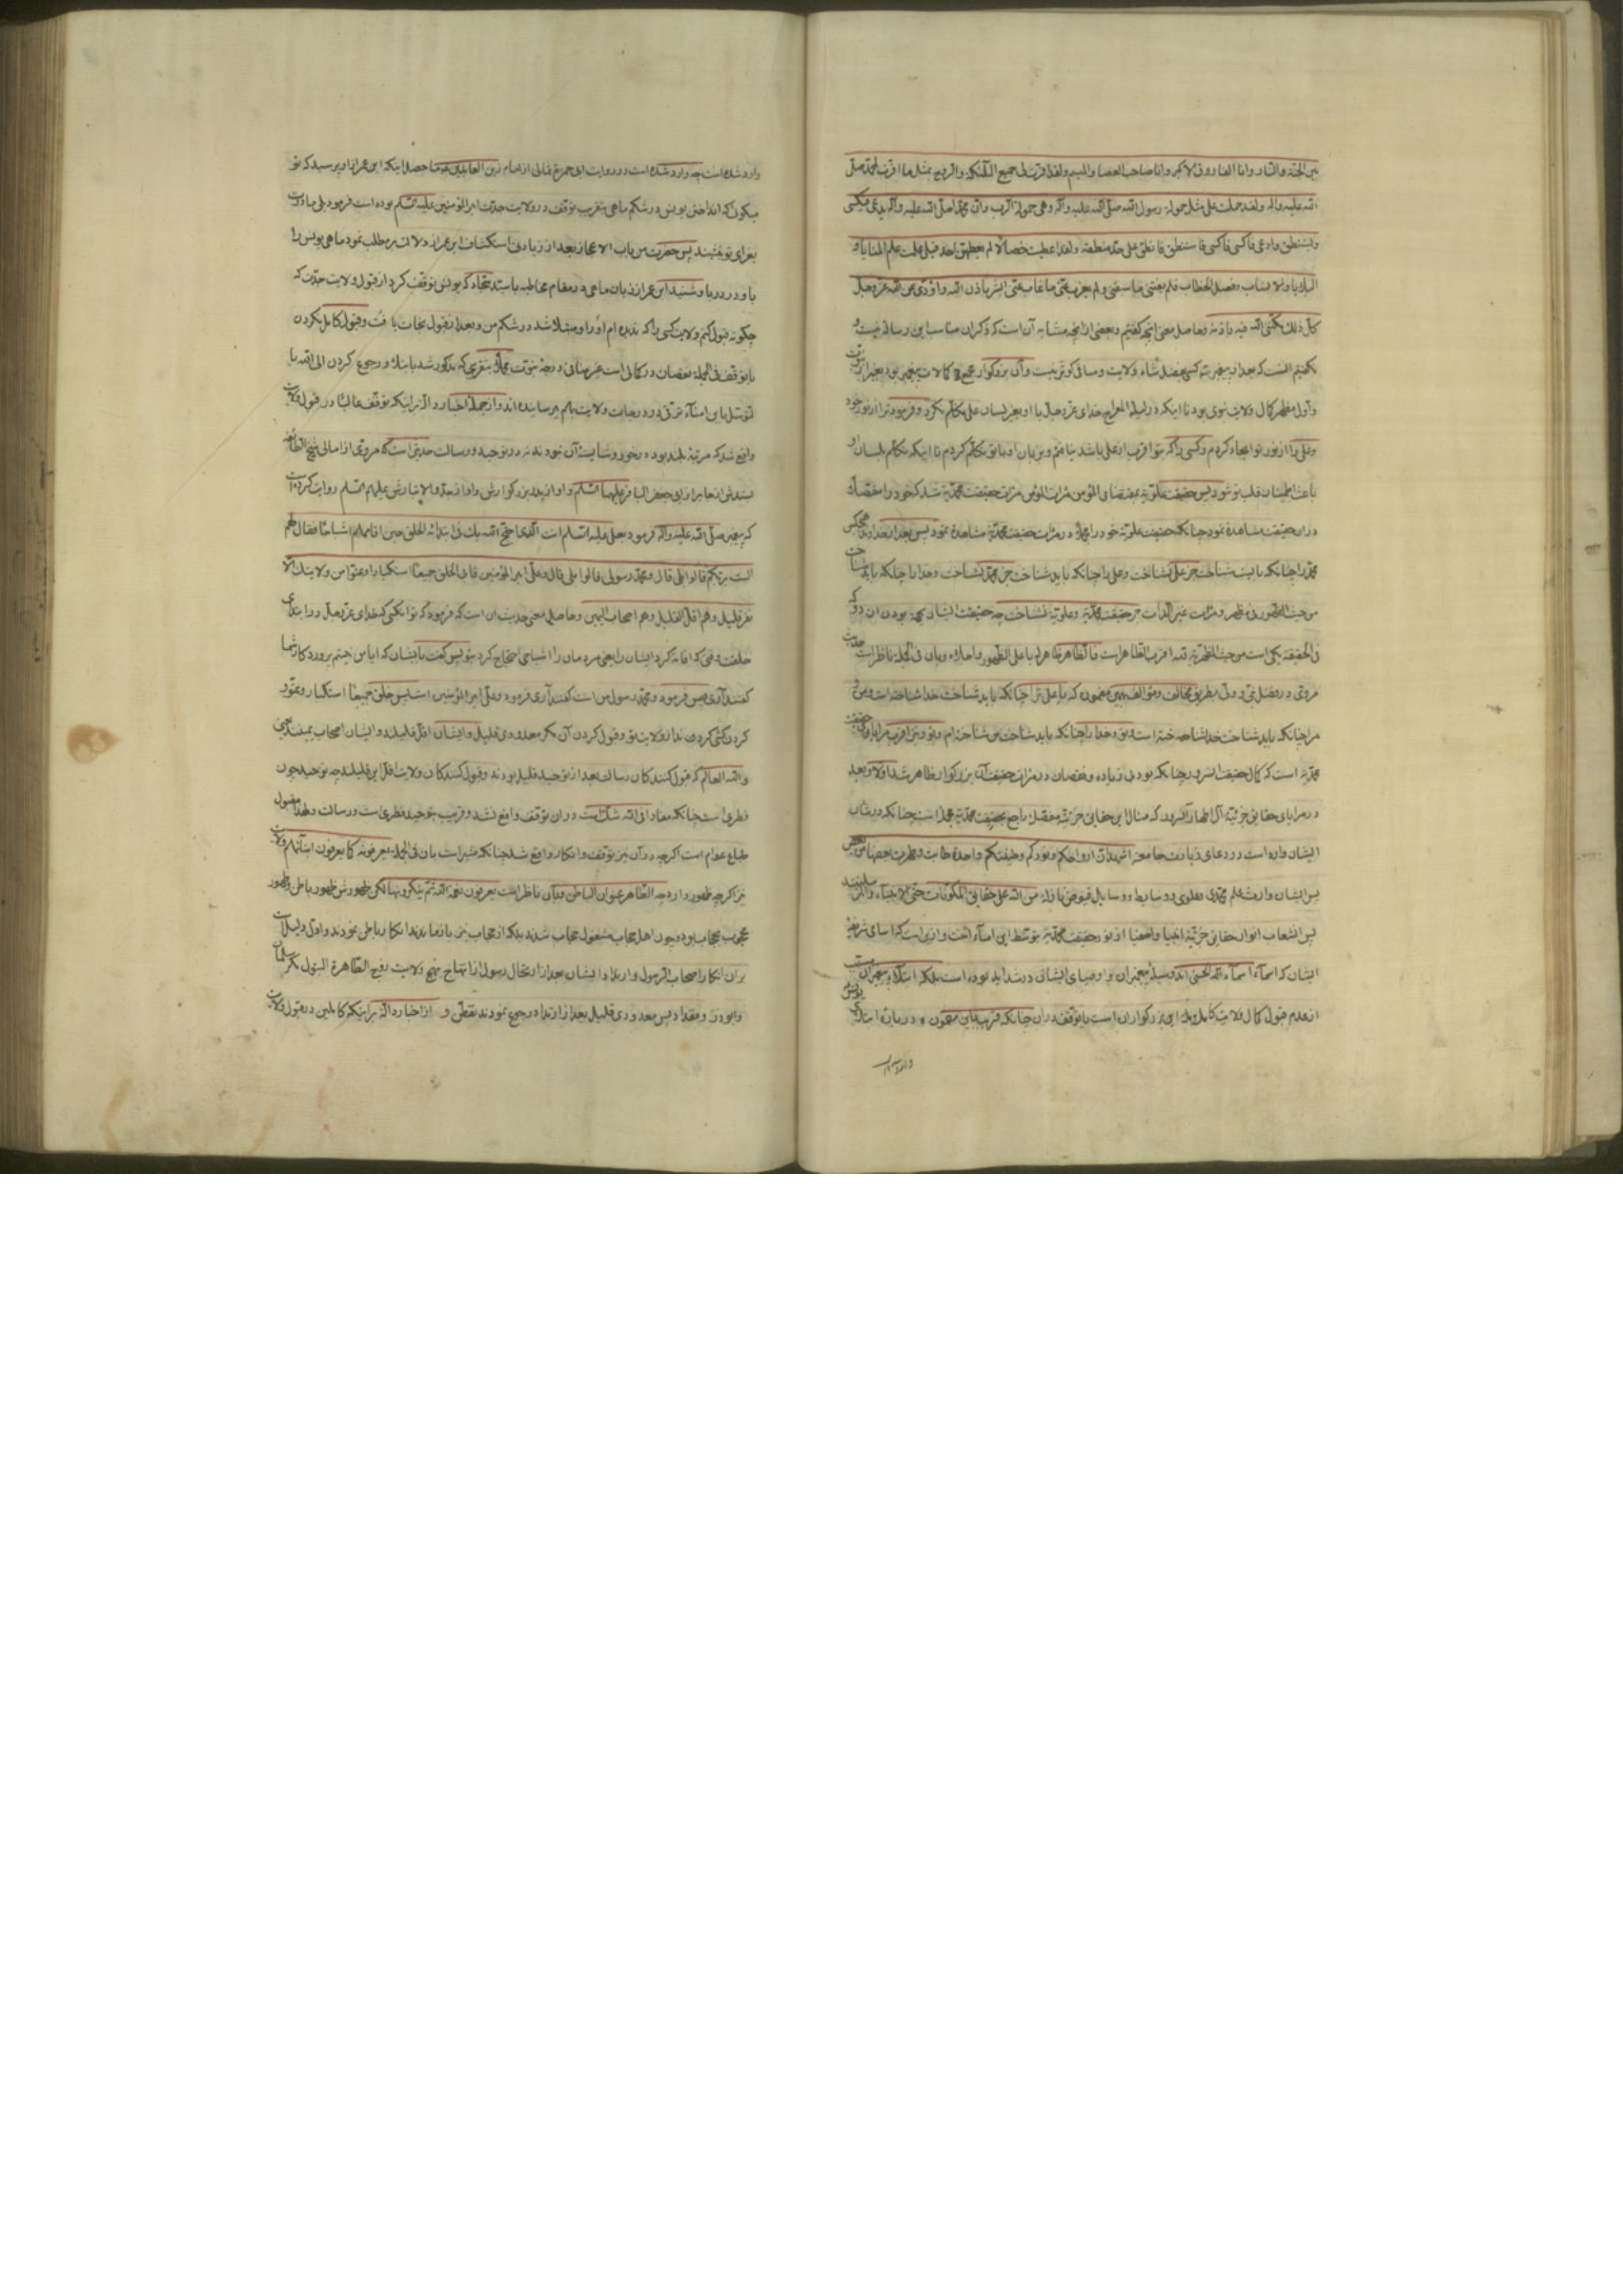 بین الجنة والنار وانا الفاروق الاکبر وانا صاحب العصا والمیسم ولقد اقرت لی جمیع الملئکة والروح بمثل ما اقرت لمحمد صلی
الله علیه واله ولقد حملت علی مثل حمولة رسول الله صلی الله علیه وآله وهی حمولة الرب وان محمدا صلی الله علیه وآله یدعی فیکسی
ویستنطق وادعی فاکسی فاستنطق فانطق علی حد منطقه ولقد اعطیت خصالا لم یعطهن احد قبلی علمت علم المنایا و
البلایا والانساب وفصل الخطاب فلم یفتنی ما سبقنی ولم یعزب عنی ما غاب عنی ابشر باذن الله واؤدی عن الله عز وجل
کل ذلک مکننی الله فیه باذنه وحاصل معنی آنچه گفتیم وبعضی از آنچه مشابه آن است که ذکر آن مناسب این رساله نیست و
نگفتیم اینست که بعد از پیغمبر
واول مظهر کمال ولایت نبوی بود تا اینکه در لیلة المعراج خدای عز وجل با او بغیر لسان علی تکلم نکرد وفرمود ترا از نور خود
وعلی را از نور تو ایجاد کردم وکسی را که بتو اقرب از علی باشد نیافتم وبزبان او با تو تکلم کردم تا اینکه تکلم بلسان او
باعث اطمینان قلب تو شود پس حقیقت علویة بمقتضای المؤمن مرآت المؤمن مرآت حقیقت محمدیة شد که خود را
در ان حقیقت مشاهدة نمود چنانکه حقیقت علویة خود را در مرآت حقیقت محمدیة مشاهدة نمود پس بعد از خدا
محمد را چنانکه بایست شناخت جز علی نشناخت وعلی را چنانکه باید شناخت جز محمد نشناخت وخدا را چنانکه باید شناخت
من حیث الظهور فی مظهر ومرآت غیر الذات جز حقیقت محمدیة وعلویة نشناخت چه حقیقت ایشان بودن ان دو که
فی الحقیقة یکی است من حیث المظهریة لله اقرب المظاهر است
مروی در فضل نبی و ولی بطریق مخالف ومؤالف بهمین مضمون که یا علی ترا چنانکه باید شناخت خدا شناخته است ومن و
مرا چنانکه باید شناخت خدا شناخته است وتو وخدا را چنانکه باید شناخت من شناخته ام وتو
محمدیة است که کمال حقیقت
در مرایای حقایق جزئیة آل اطهار آن سرور که مثال این حقایق جزئیة مفصلة راجع بحقیقت محمدیة مجملة است چنانکه در شان
ایشان وارد است در دعای زیارت جامعه اشهد ان ارواحکم ونورکم وطینتکم واحدة طابت وطهرت بعضها من بعض
پس ایشان وارث علم محمدی وعلوی و وسایط و وسایل فیوض نازله من الله علی حقایق المکونات حتی الانبیاء والمرسلینند
پس انشعاب انوار حقایق جزئیة انبیا واصفیا از نور حقیقت محمدیة بتوسط این امناء است وازین است که اسامی شریفه
ایشان که اسماء الله الحسنی اند وسیلة پیغمبران واوصیای ایشان در شداید بوده است بلکه ابتلاء پیغمبران
از عدم قبول کمال ولایت کاملة این بزرگواران است یا توقف در ان چنانکه قریب باین مضمون در باره ابتلای یونس
وارد شده است
وارد شده است چه وارد شده است در روایت ابی حمزه ثمالی از امام زین العابدین ع ما حصل اینکه ابن عمر از او پرسید که تو
میگوئی که انداختن یونس در شکم ماهی بتقریب توقف در ولایت جدت امیر المؤمنین علیه السلام بوده است فرمود بلی مادرت
بعزای تو نشیند پس حضرت من باب الاعجاز بعد از زیادتی استکشاف ابن عمر از دلالت بر مطلب نمود ماهی یونس را
باو در دریا وشنید ابن عمر از زبان ماهی در مقام مخاطبه با سید سجاد که یونس توقف کرد از قبول ولایت جدت که
چگونه قبول کنم ولایت کسی را که ندیده ام او را ومبتلا شد در شکم من وبعد از قبول نجات یافت وقبول کامل نکردن
یا توقف فی الجملة نقصان در کمالی است غیر منافی درجهٔ نبوت
توسل باین امناء ترقی در درجات ولایت بهم رسانیده اند واز جمله اخبار دالة بر اینکه توقف غالبا در قبول ولایت
واقع شد که مرتبهٔ بلند بود در خور وشایستهٔ آن خود نه در توحید ورسالت حدیثی است که مروی از امالی شیخ الطائفه
بسندش از جابر از ابی جعفر الباقر علیهما السلام واو از پدر بزرگوارش واو از جد والاتبارش علیهم السلام روایت کرده است
که پیغمبر صلی الله علیه وآله فرمود بعلی علیه السلام انت الذی احتج الله بک فی ابتدائه الخلق حین اقامهم اشباحا فقال لهم
الست بربکم قالوا بلی قال ومحمد رسولی قالوا بلی قال وعلی امیر المؤمنین فابی الخلق جمیعا استکبارا وعتوا من ولایتک الا
نفر قلیل وهم اقل القلیل وهم اصحاب الیمین وحاصل معنی حدیث ان است که فرمود که تو انکسی که خدای عز وجل در ابتدای
خلقت وقتی که اقامه کرد ایشان را یعنی مردمان را اشباحی احتجاج کرد بتو پس گفت بایشان که ایا من نیستم پروردگار شما
گفتند آری پس فرمود ومحمد رسول من است گفتند آری فرمود وعلی امیر المؤمنین است پس خلق جمیعا استکبار وعتو
کردن کشی کردند از ولایت تو وقبول کردن آن مگر معدودی قلیل وایشان اقل قلیلند وایشان اصحاب یمینند یعنی
والله العالم که قبول کنندکان رسالت بعد از توحید قلیل بودند وقبول کنندکان ولایت اقل این قلیلند چه توحید چون
فطری است چنانکه مفاد افی الله شک است در ان توقف واقع نشد وقریب بتوحید فطری است ورسالت
طباع عوام است اگرچه در آن نیز توقف وانکار واقع شد چنانکه مشیر است بان فی الجملة یعرفونه کما یعرفون ابنائهم وولایت
نیز اگرچه ظهور دارد چه الظاهر عنوان الباطن وبان ناظر است یعرفون نعمة الله ثم ینکرونها لکن ظهورش ظهور باطن وظهور
محجوب بحجاب بود وچون اهل حجاب مشغول حجاب شدند بلکه از حجاب نیز بازماندند انکار باطن نمودند واول دلیل است
بران انکار اصحاب الرسول وارتداد ایشان بعد از ارتحال رسول از انتهاج منهج ولایت زوج الطاهرة البتول مگر سلمان
وابوذر ومقداد پس معدودی قلیل بعد از ارتداد رجوع نمودند بفطن و از اخبار دالة بر اینکه کاملین در قبول ولایت